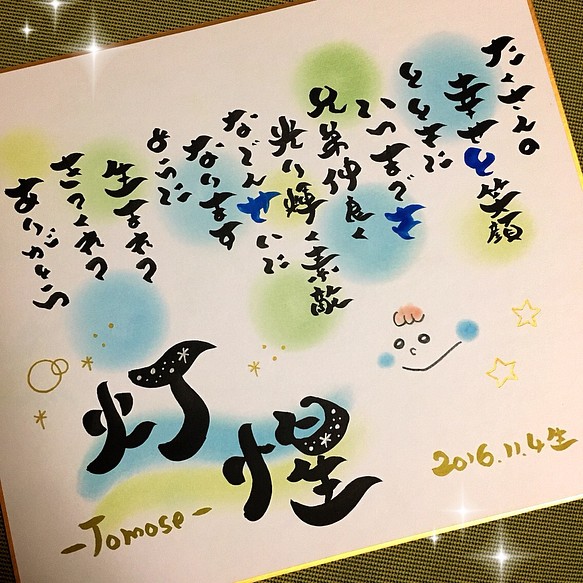 たくさんの
幸せと笑顔
とともに
いつまでも
兄弟仲良く
光り輝く素敵
なじんせいに
なります
ように
生まれて
きてくれて
ありがとう
灯煋
-Tomose-
2016.11.4生